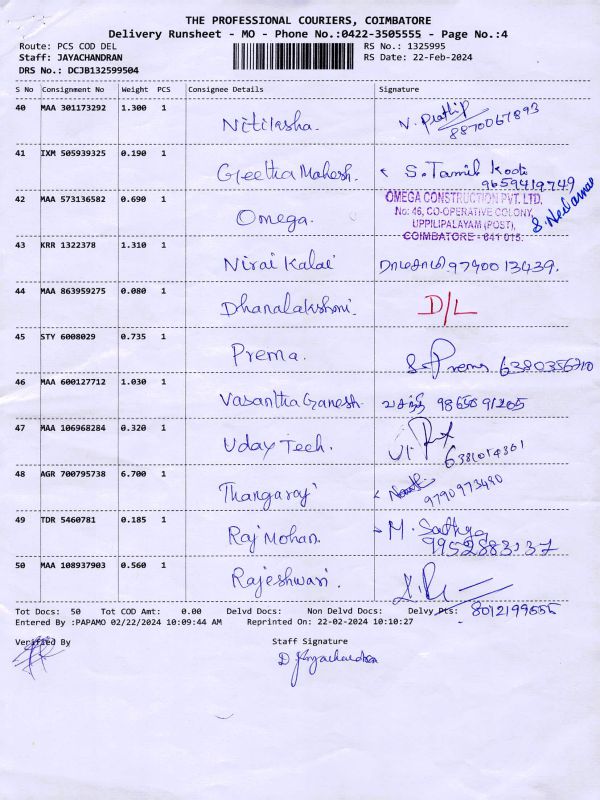 THE PROFESSIONAL COURIERS, COIMBATORE
Delivery Runsheet - MO - Phone No.:0422-3505555 - Page No.:4
Route: PCS COD DEL RS No.: 1325995
Staff: JAYACHANDRAN RS Date: 22-Feb-2024
DRS No.: DCJB132599504
S No Consignment No Weight PCS Consignee Details Signature
40 MAA 301173292 1.300 1 Nitiksha. N. Prathip
8870067893
41 IXM 505939325 0.190 1 Geetha Mahesh. S. Tamil Kodi
9659419749
42 MAA 573136582 0.690 1 Omega. OMEGA CONSTRUCTION PVT. LTD.
No: 46, CO-OPERATIVE COLONY,
UPPILIPALAYAM (POST),
COIMBATORE - 641 015.
43 KRR 1322378 1.310 1 Nirai Kalai 9790013439.
44 MAA 863959275 0.080 1 Dhanalakshmi. D/L
45 STY 6008029 0.735 1 Prema. S. Prema 6380356710
46 MAA 600127712 1.030 1 Vasantha Ganesh. வசந்தி 9865091205
47 MAA 106968284 0.320 1 Uday Tech.
6381014301
48 AGR 700795738 6.700 1 Thangaraj
9790973490
49 TDR 5460781 0.185 1 Raj Mohan. M. Sathya
9952883137
50 MAA 108937903 0.560 1 Rajeshwari.
Tot Docs: 50 Tot COD Amt: 0.00 Delvd Docs: Non Delvd Docs: Delvy Pts: 8012199555
Entered By :PAPAMO 02/22/2024 10:09:44 AM Reprinted On: 22-02-2024 10:10:27
Verified By Staff Signature
D Jayachandran